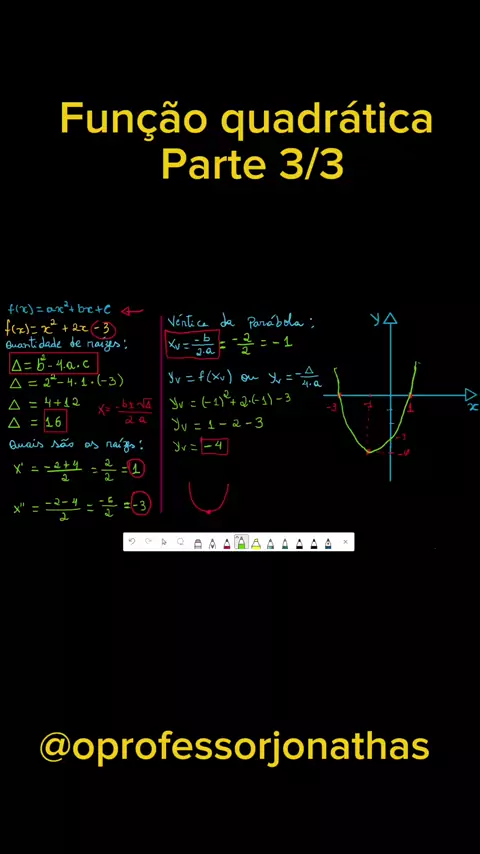 Função quadrática
Parte 3/3
f(x) = ax² + bx + c
f(x) = x² + 2x - 3
Quantidade de raízes:
Δ = b² - 4.a.c
Δ = 2² - 4.1.(-3)
Δ = 4 + 12
Δ = 16
x = -b±√Δ / 2.a
Quais são as raízes:
x' = -2+4 / 2 = 2/2 = 1
x" = -2-4 / 2 = -6/2 = -3
Vértice da Parábola:
Xv = -b / 2.a = -2/2 = -1
Yv = f(Xv) ou Yv = -Δ / 4.a
Yv = (-1)² + 2.(-1) - 3
Yv = 1 - 2 - 3
Yv = -4
y
x
-3
-1
1
-3
-4
@oprofessorjonathas